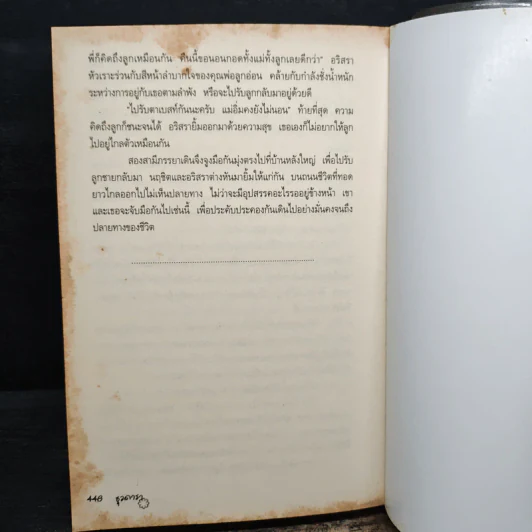 พี่ก็คิดถึงลูกเหมือนกัน คืนนี้ขอนอนกอดทั้งแม่ทั้งลูกเลยดีกว่า" อริสรา
หัวเราะร่วนกับสีหน้าลำบากใจของคุณพ่อลูกอ่อน คล้ายกับกำลังชั่งน้ำหนัก
ระหว่างการอยู่กับเธอตามลำพัง หรือจะไปรับลูกกลับมาอยู่ด้วยดี
"ไปรับตาเบสท์กันนะครับ แม่อิ่มคงยังไม่นอน" ท้ายที่สุด ความ
คิดถึงลูกก็ชนะจนได้ อริสรายิ้มออกมาด้วยความสุข เธอเองก็ไม่อยากให้ลูก
ไปอยู่ไกลตัวเหมือนกัน
สองสามีภรรยาเดินจึงจูงมือกันมุ่งตรงไปที่บ้านหลังใหญ่ เพื่อไปรับ
ลูกชายกลับมา นฤชิตและอริสราต่างหันมายิ้มให้แก่กัน บนถนนชีวิตที่ทอด
ยาวไกลออกไปไม่เห็นปลายทาง ไม่ว่าจะมีอุปสรรคอะไรรออยู่ข้างหน้า เขา
และเธอจะจับมือกันไปเช่นนี้ เพื่อประคับประคองกันเดินไปอย่างมั่นคงจนถึง
ปลายทางของชีวิต
448